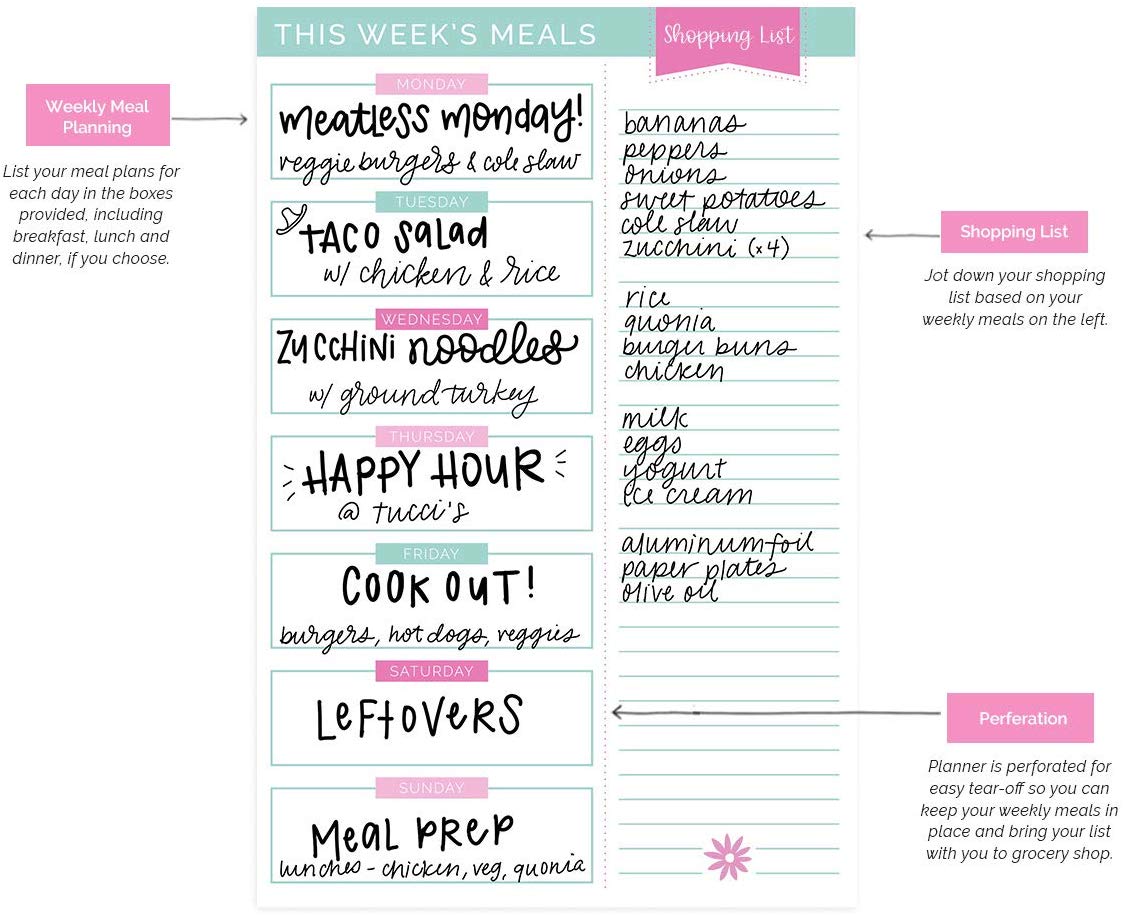 THIS WEEK'S MEALS
Shopping List
Weekly Meal
Planning
List your meal plans for
each day in the boxes
provided, including
breakfast, lunch and
dinner, if you choose.
MONDAY
meatless monday!
veggie burgers & cole slaw
TUESDAY
TACO Salad
w/ chicken & rice
WEDNESDAY
ZUCCHINI noodles
w/ ground turkey
THURSDAY
HAPPY HOUR
@ tucci's
FRIDAY
COOK OUT!
burgers, hot dogs, veggies
SATURDAY
LeFtOVeRS
SUNDAY
Meal PReP
lunches - chicken, veg, quonia
bananas
peppers
onions
sweet potatoes
cole slaw
zucchini (x4)
rice
quonia
burger buns
chicken
milk
eggs
yogurt
ice cream
aluminum foil
paper plates
olive oil
Shopping List
Jot down your shopping
list based on your
weekly meals on the left.
Perferation
Planner is perforated for
easy tear-off so you can
keep your weekly meals in
place and bring your list
with you to grocery shop.